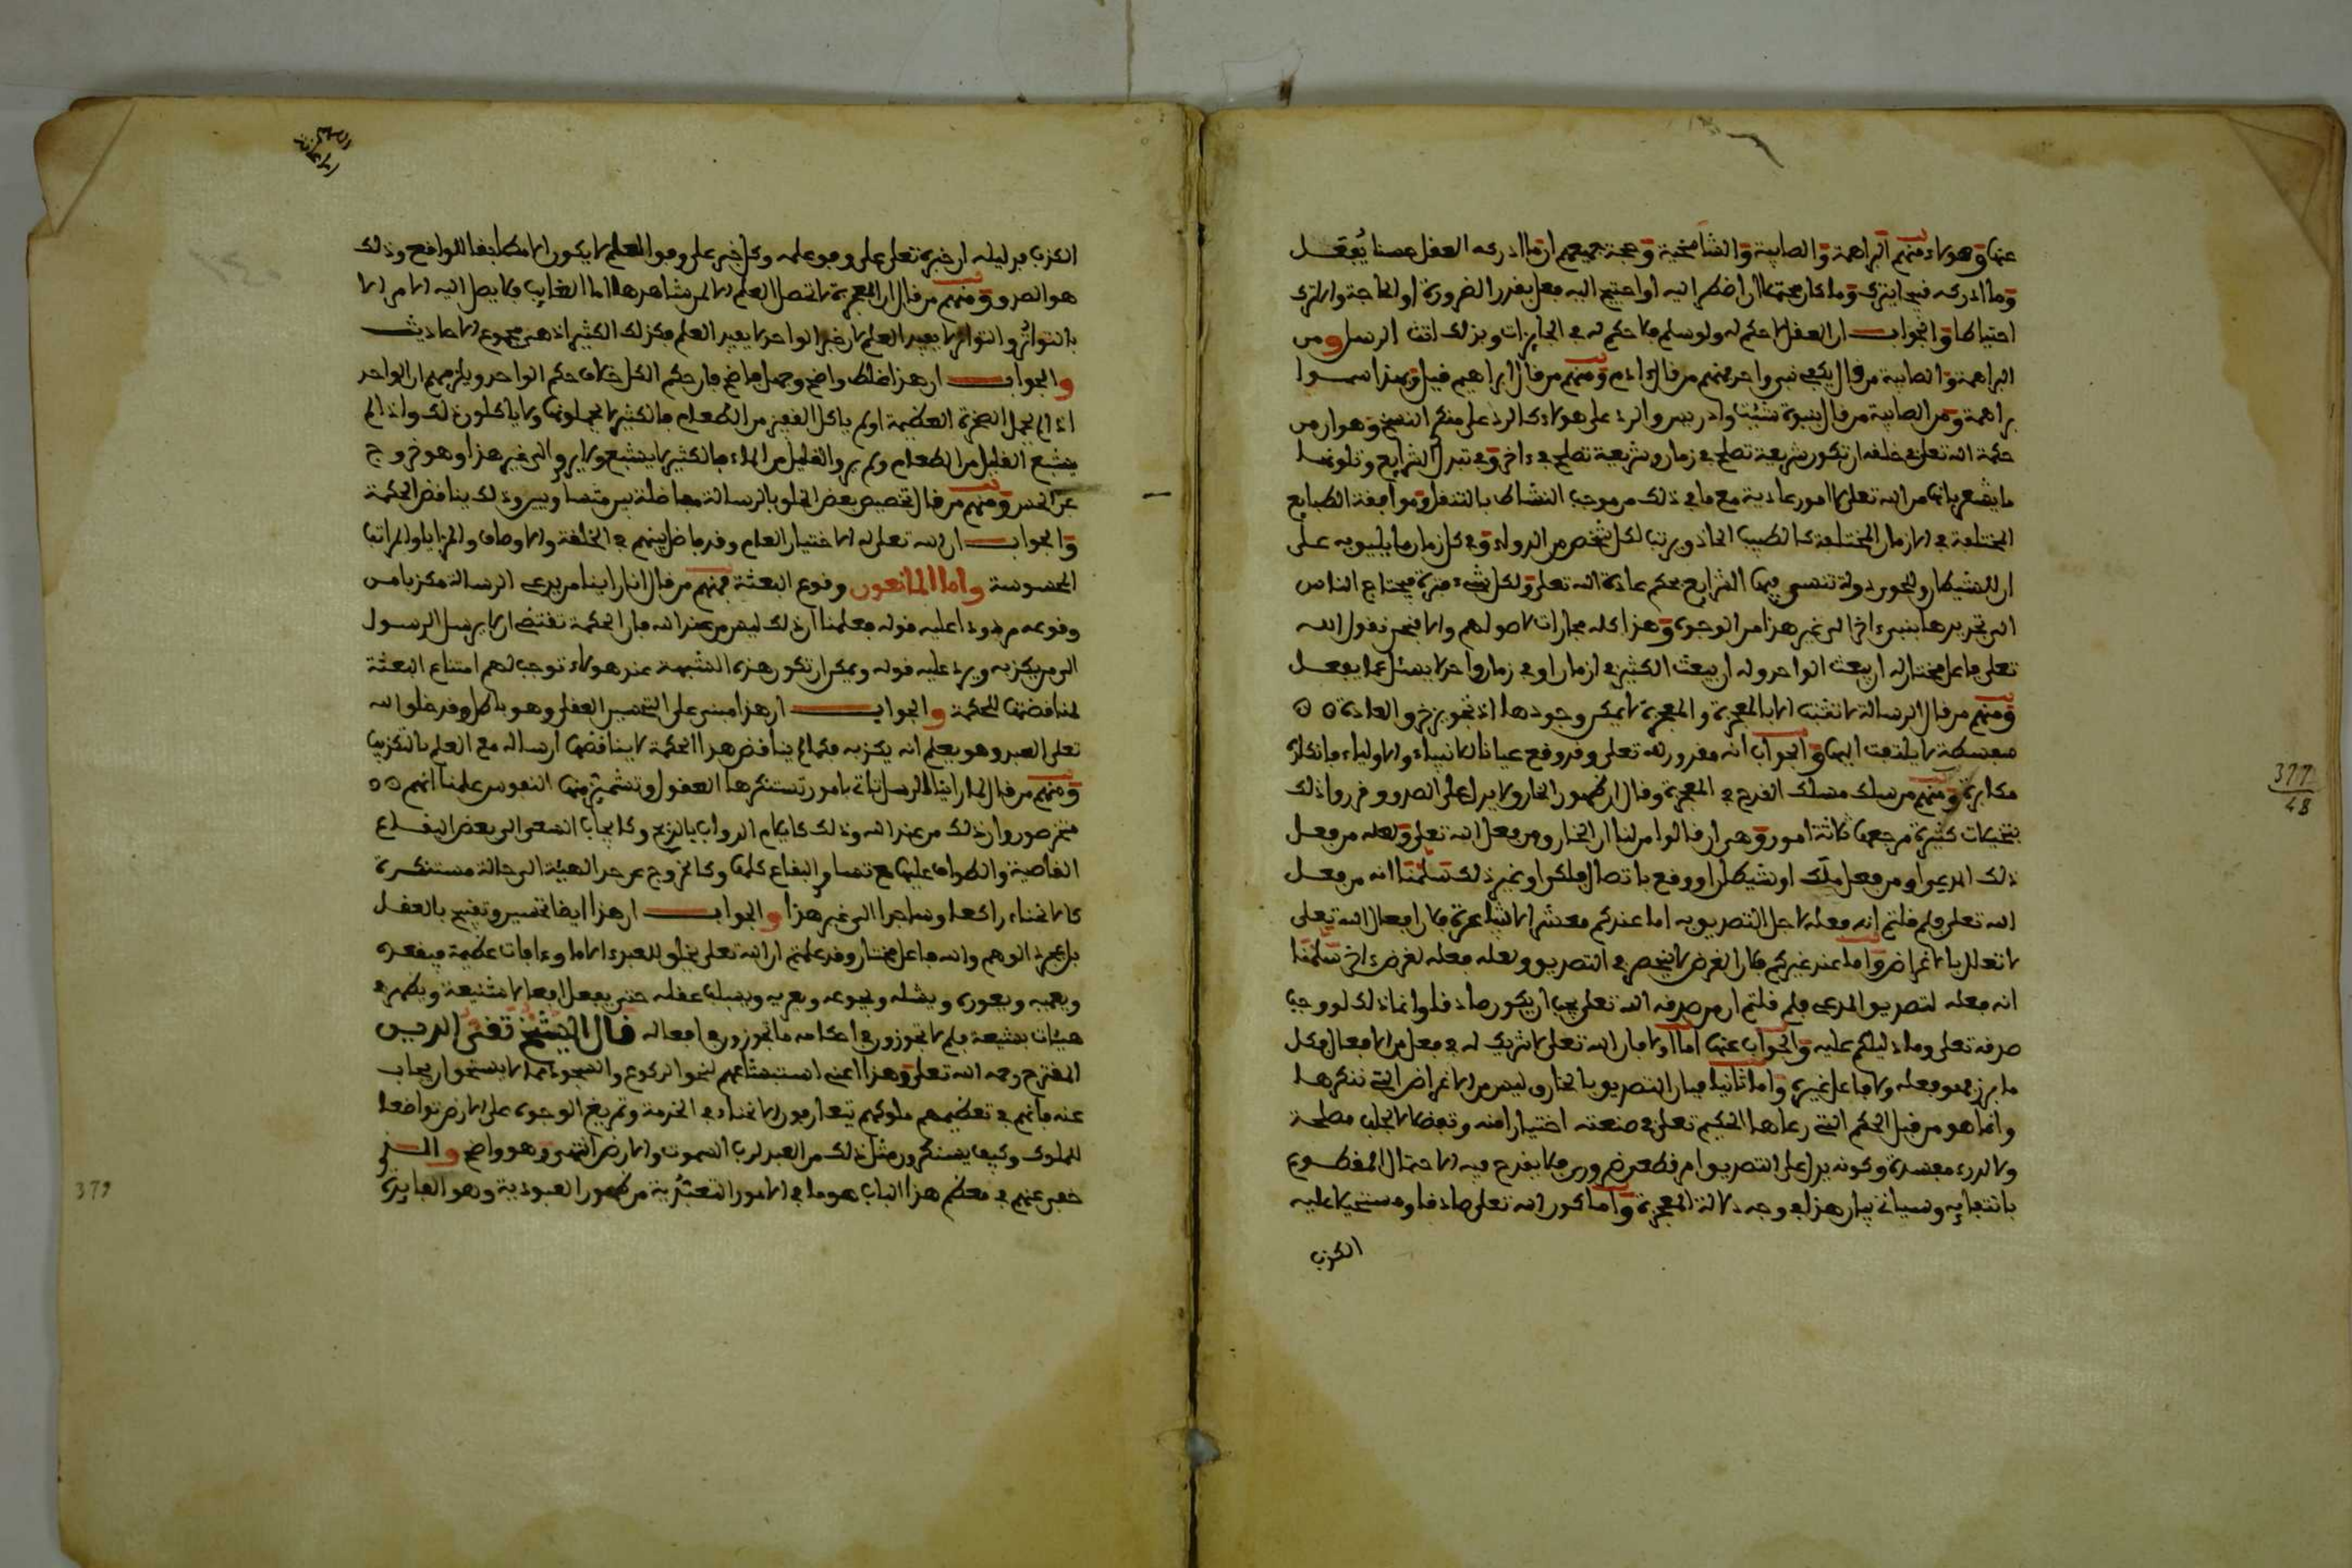 عنها وهؤلاء منهم البراهمة والصابية والتناسخية وحجة جميعهم ان ما ادركه العقل حسنا يفعل
وما ادركه قبيحا يترك وما كان محتملا ان اضطر اليه او احتيج اليه فعل بقدر الضرورة او الحاجة والا ترك
احتياطا والجواب ان العقل لا حكم له ولو سلم فلا حكم له في الجايزات وبذلك اتت الرسل ومن
البراهمة والصابية من قال يكفي نبي واحد فمنهم من قال ءادم ومنهم من قال ابراهيم قيل وبهذا سموا
براهمة ومن الصابية من قال بنبوة شيث وادريس والرد على هؤلاء كالرد على منكر النسخ وهو ان من
حكمة الله تعلى في خلقه ان تكون شريعة تصلح في زمان وشريعة تصلح في ءاخر وفي تبدل الشرايع وتلونها
ما يشعر بانها من الله تعلى لا امور عادية مع ما في ذلك من موجب النشاط بالتنقل وموافقة الطبايع
المختلفة في الازمان المختلفة كالطبيب الحاذق يرتب لكل شخص من الدواء وفي كل زمان ما يليق به على
ان للشيطان والجور دولة تنسى فيها الشرايع بحكم عادة الله تعلى ولكل شيء فترة فيحتاج الناس
الى تجديدها بنبيء اخر الى غير هذا من الوجوه وهذا كله مجاراة لاصولهم والا فنحن نقول الله
تعلى فاعل مختار له ان يبعث الواحد وله ان يبعث الكثير في ازمان او في زمان واحد لا يسئل عما يفعل
ومنهم من قال الرسالة لا تثبت الا بالمعجزة والمعجزة لا يمكن وجودها اذ تجويز خرق العادة
سفسطة لا يلتفت اليها والجواب انه مقدور لله تعلى وقد وقع عيانا للانبياء والاولياء فانكاره
مكابرة ومنهم من سلك مسلك القدح في المعجزة وقال ان ظهور الخارق لا يدل على الصدق وقرروا ذلك
بتخيلات كثيرة مرجعها ثلاثة امور وهي ان قالوا من لنا ان الخارق من فعل الله تعلى ولعله من فعل
ذلك المدعي او من فعل ملك او شيطان او وقع باتصال فلكي او غير ذلك سلمنا انه من فعل
الله تعلى فلم قلتم انه فعله لاجل التصديق به اما عندكم معشر الاشاعرة فلان افعال الله تعلى
لا تعلل بالاغراض واما عند غيركم فلان الغرض لا ينحصر في التصديق ولعله فعله لغرض ءاخر سلمنا
انه فعله لتصديق المدعي فلم قلتم ان من صدقه الله تعلى يجب ان يكون صادقا وانما ذلك لو وجب
صدقه تعلى وما دليلكم عليه والجواب عنها اما اولا فبان الله تعلى لا شريك له في فعل من الافعال فكل
ما برز فهو فعله ولا فاعل غيره واما ثانيا فبان التصديق بالخارق ليس من الاغراض التي ننكرها
وانما هو من قبل الحكم التي رعاها الحكيم تعلى في صنعته اختيارا منه وتفضلا لا لجلب مصلحة
ولا لدرء مفسدة وكونه يدل على التصديق امر قطعي ضروري فلا يقدح فيه الاحتمال المقطوع
بانتفايه وسياتي بيان هذا في وجه دلالة المعجزة واما كون الله تعلى صادقا ومستحيلا عليه
الكذب
الكذب فدليله ان خبره تعلى على وفق علمه وكل خبر على وفق العلم لا يكون الا مطابقا للواقع وذلك
هو الصدق ومنهم من قال ان المعجزة لا تحصل العلم الا لمن شاهدها اما الغايب فلا يصل اليه الامر الا
بالتواتر والتواتر لا يفيد العلم لان خبر الواحد لا يفيد العلم فكذلك الكثير اذ هي مجموع الاحاديث
والجواب ان هذا غلط واضح وجهل فاضح فان حكم الكل خلاف حكم الواحد ويلزمهم ان الواحد
اذا لم يحمل الصخرة العظيمة او لم ياكل القفيز من الطعام فالكثير لا يحملونها ولا ياكلون ذلك واذا لم
يشبع القليل من الطعام ولم يرو القليل من الماء فالكثير لا يشبع ولا يروي الى غير هذا وهو خروج
عن الحس ومنهم من قال تخصيص بعض الخلق بالرسالة مفاضلة بين متساويين وذلك ينافض الحكمة
والجواب ان الله تعلى له الاختيار العام وقد فاضل بينهم في الخلقة والاوصاف والمزايا والمراتب
المحسوسة واما المانعون وقوع البعثة فمنهم من قال انا راينا من يدعي الرسالة مكذبا من
وقومه مردودا عليه قوله فعلمنا ان ذلك ليس من عند الله فان الحكمة تقتضي ان لا يرسل الرسول
الى من يكذبه ويرد عليه قوله ويمكن ان تكون هذه الشبهة عند هؤلاء توجب لهم امتناع البعثة
لمناقضتها للحكمة والجواب ان هذا مبني على التحسين العقلي وهو باطل وقد خلق الله
تعلى العبد وهو يعلم انه يكذبه فكما لم يناقض هذا الحكمة لا يناقضها ارساله مع العلم بالتكذيب
ومنهم من قال لما راينا الرسل تاتي بامور تستنكرها العقول وتشمئز منها النفوس علمنا انهم
متخرصون وان ذلك من عند الله وذلك كايلام الدواب بالذبح وكايجاب السعي الى بعض البقاع
القاصية والطواف عليها مع تساوي البقاع كلها وكالخروج عن حد الهيئة الى حالة مستنكرة
كالانحناء راكعا وساجدا الى غير هذا والجواب ان هذا ايضا تحسين وتقبيح بالعقل
بل بمجرد الوهم والله فاعل مختار وقد علمتم ان الله تعلى يخلق للعبد ءالاما وءافات عظيمة فيقعده
ويعميه ويعوره ويشله ويجوعه ويعريه ويسلب عقله حتى يفعل افعالا شنيعة ويظهر في
هيئات بشيعة فلم لا تجوزون في احكامه ما تجوزون في افعاله قال الشيخ تقي الدين
المقترح رحمه الله تعلى وهذا اعني استبشاعهم لنحو الركوع والسجود مما لا يستحق ان يجاب
عنه فانهم في تعظيمهم ملوكهم يتعارفون الانحناء في الخدمة وتمريغ الوجوه على الارض تواضعا
للملوك وكيف يستنكرون مثل ذلك من العبد لرب السموت والارض انتهى وهو واضح والسر
خفي عنهم في معظم هذا الباب هو ما في الامور التعبدية من ظهور العبودية وهو الفايدة
377
48
379